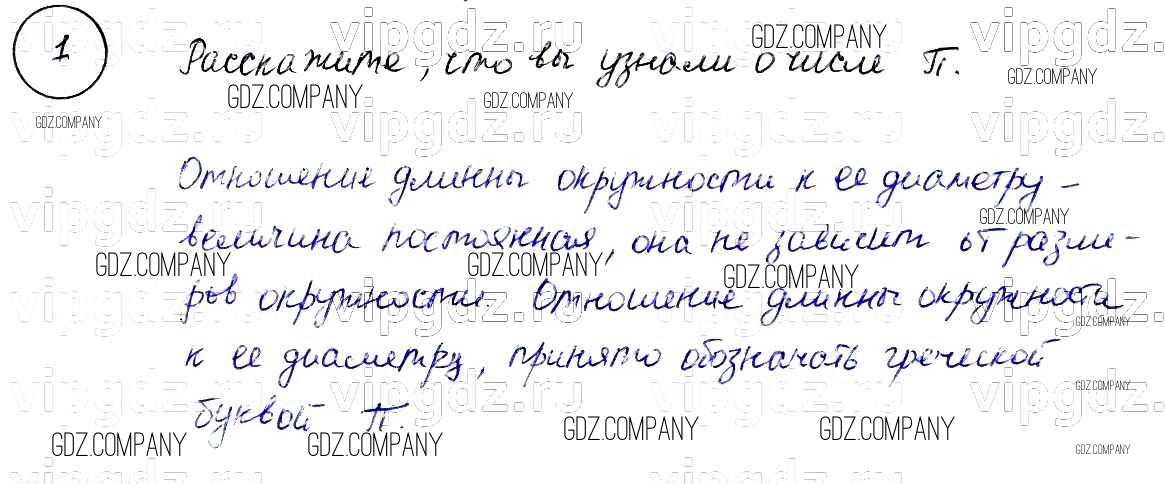 1 Расскажите, что вы узнали о числе П.
Отношение длинны окружности к ее диаметру –
величина постоянная, она не зависит от разме-
ров окружности. Отношение длинны окружности
к ее диаметру, принято обозначать греческой
буквой П.
GDZ.COMPANY
vipgdz.ru